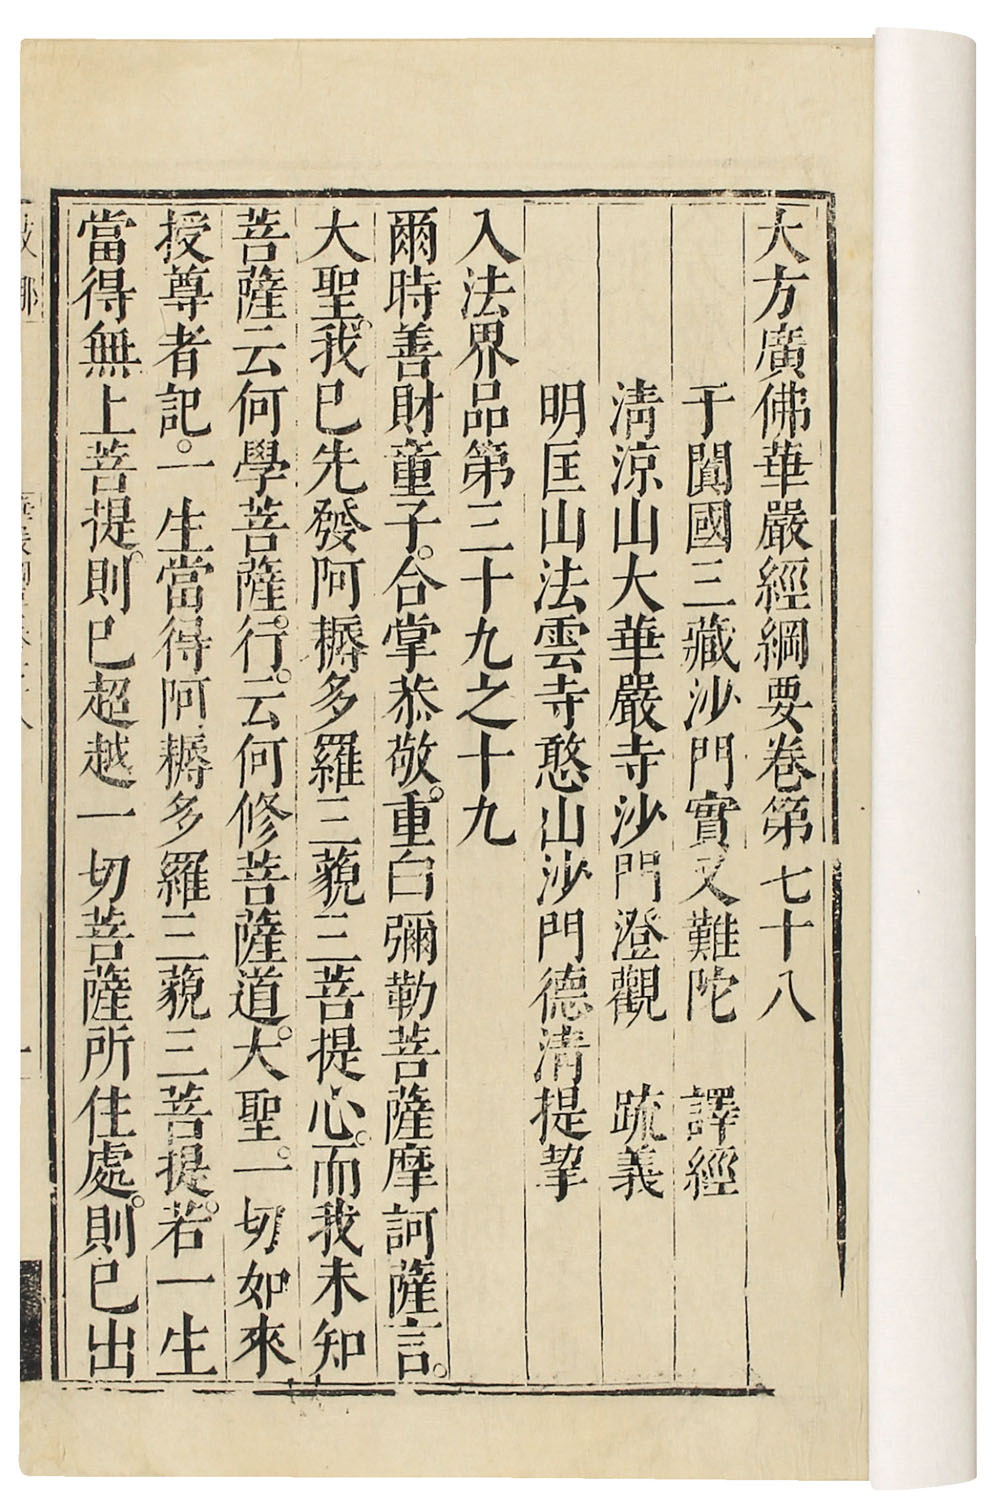 大方廣佛華嚴經綱要卷第七十八
于闐國三藏沙門實叉難陀　譯經
清涼山大華嚴寺沙門澄觀　疏義
明匡山法雲寺憨山沙門德清提挈
入法界品第三十九之十九
爾時善財童子。合掌恭敬。重白彌勒菩薩摩訶薩言。
大聖。我已先發阿耨多羅三藐三菩提心。而我未知
菩薩云何學菩薩行。云何修菩薩道。大聖。一切如來
授尊者記。一生當得阿耨多羅三藐三菩提。若一生
當得無上菩提。則已超越一切菩薩所住處。則已出